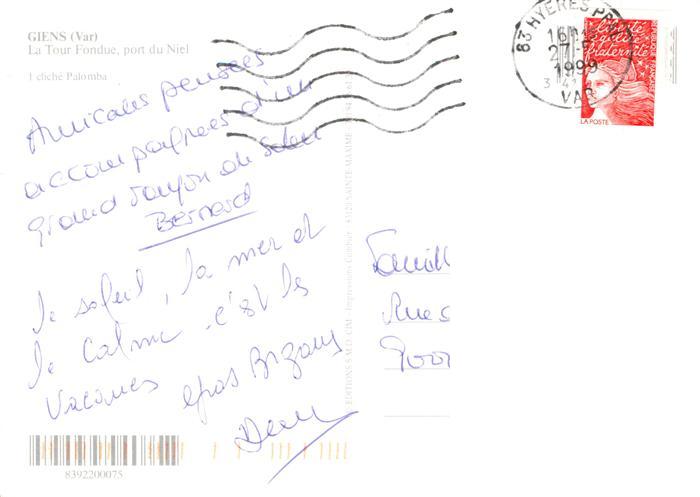 GIENS (Var)
La Tour Fondue, port du Niel
1 cliché Palomba
Amicales pensées
accompagnées d'un
grand rayon de soleil
Bernard
le soleil, la mer et
le calme c'est les
vacances
gros Bizous
8392200075
EDITIONS S.A.E.D. CIM
83120 SAINTE-MAXIME
83 HYERES PPAL
16H15
27-
1999
VAR
liberté
égalité
fraternité
RÉPUBLIQUE FRANÇAISE
LA POSTE
Famill
Rue